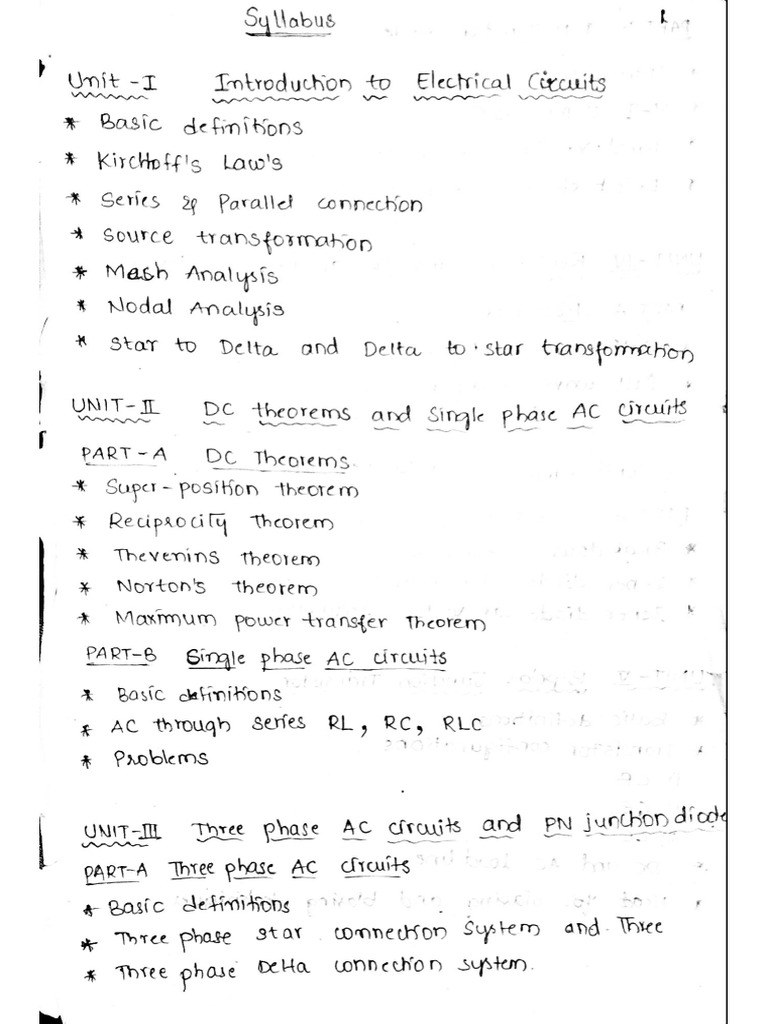 Syllabus
Unit-I Introduction to Electrical Circuits
* Basic definitions
* Kirchoff's Law's
* Series & Parallel connection
* Source transformation
* Mesh Analysis
* Nodal Analysis
* Star to Delta and Delta to star transformation
UNIT-II DC theorems and Single phase AC circuits
PART-A DC Theorems
* Super-position theorem
* Reciprocity Theorem
* Thevenins theorem
* Norton's theorem
* Maximum power transfer Theorem
PART-B Single phase AC circuits
* Basic definitions
* AC through series RL, RC, RLC
* Problems
UNIT-III Three phase AC circuits and PN junction diode
PART-A Three phase AC circuits
* Basic definitions
* Three phase star connection System and Three
* Three phase Delta connection system.